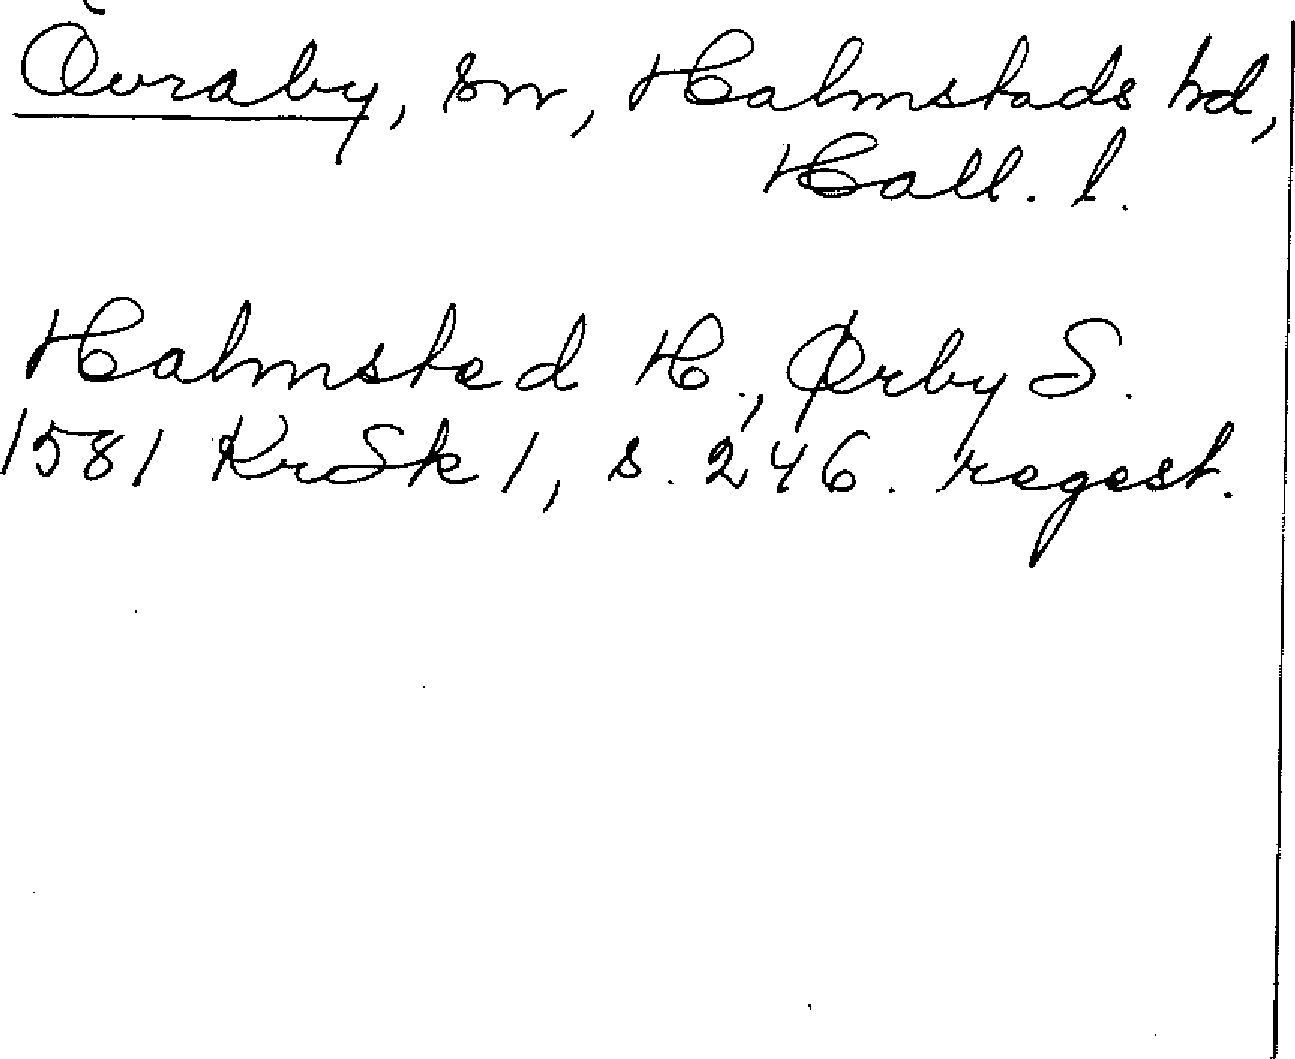 Övraby, sn, Halmstads hd,
Hall. l.
Halmsted H., Ørby S.
1581 KrSk 1, s. 246. regest.